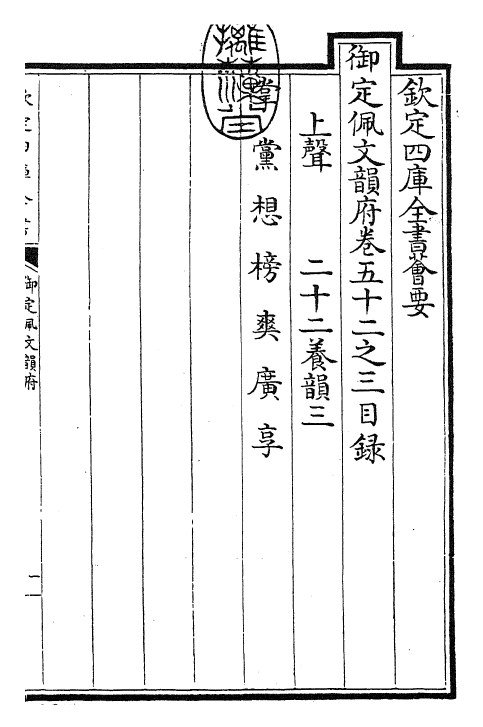 欽定四庫全書薈要
御定佩文韻府卷五十二之三目録
上聲　二十二養韻三
黨想榜爽廣享
御定佩文韻府
一